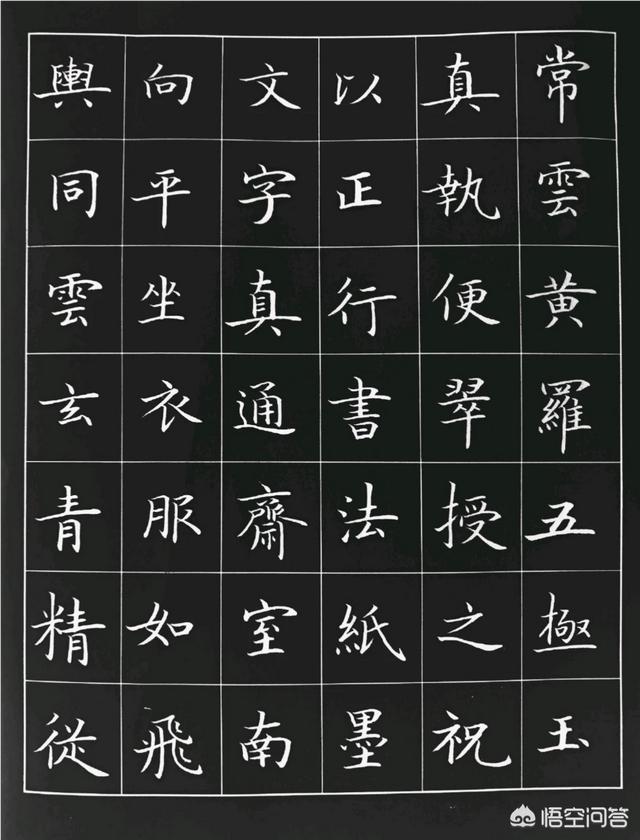 常雲黄羅五極玉
真執便翠授之祝
以正行書法紙墨
文字真通齋室南
向平坐衣服如飛
輿同雲玄青精從
悟空问答